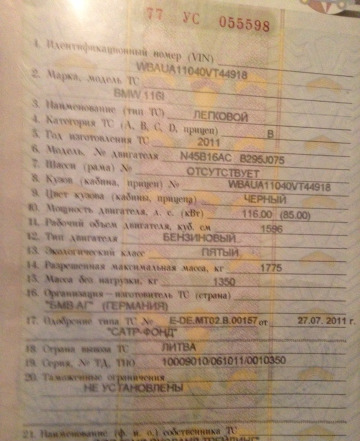 77 УС 055598
1. Идентификационный номер (VIN)
WBAUA11040VT44918
2. Марка, модель ТС
BMW 116I
3. Наименование (тип ТС) ЛЕГКОВОЙ
4. Категория ТС (А, В, С, D, прицеп) В
5. Год изготовления ТС 2011
6. Модель, № двигателя N45B16AC B295J075
7. Шасси (рама) № ОТСУТСТВУЕТ
8. Кузов (кабина, прицеп) № WBAUA11040VT44918
9. Цвет кузова (кабины, прицепа) ЧЕРНЫЙ
10. Мощность двигателя, л. с. (кВт) 116.00 (85.00)
11. Рабочий объем двигателя, куб. см 1596
12. Тип двигателя БЕНЗИНОВЫЙ
13. Экологический класс ПЯТЫЙ
14. Разрешенная максимальная масса, кг 1775
15. Масса без нагрузки, кг 1350
16. Организация—изготовитель ТС (страна)
"БМВ АГ" (ГЕРМАНИЯ)
17. Одобрение типа ТС № E-DE.MT02.B.00157 от 27.07.2011 г.
"САТР-ФОНД"
18. Страна вывоза ТС ЛИТВА
19. Серия, № ТД, ТПО 10009010/061011/0010350
20. Таможенные ограничения
НЕ УСТАНОВЛЕНЫ
21. Наименование (ф. и. о.) собственника ТС